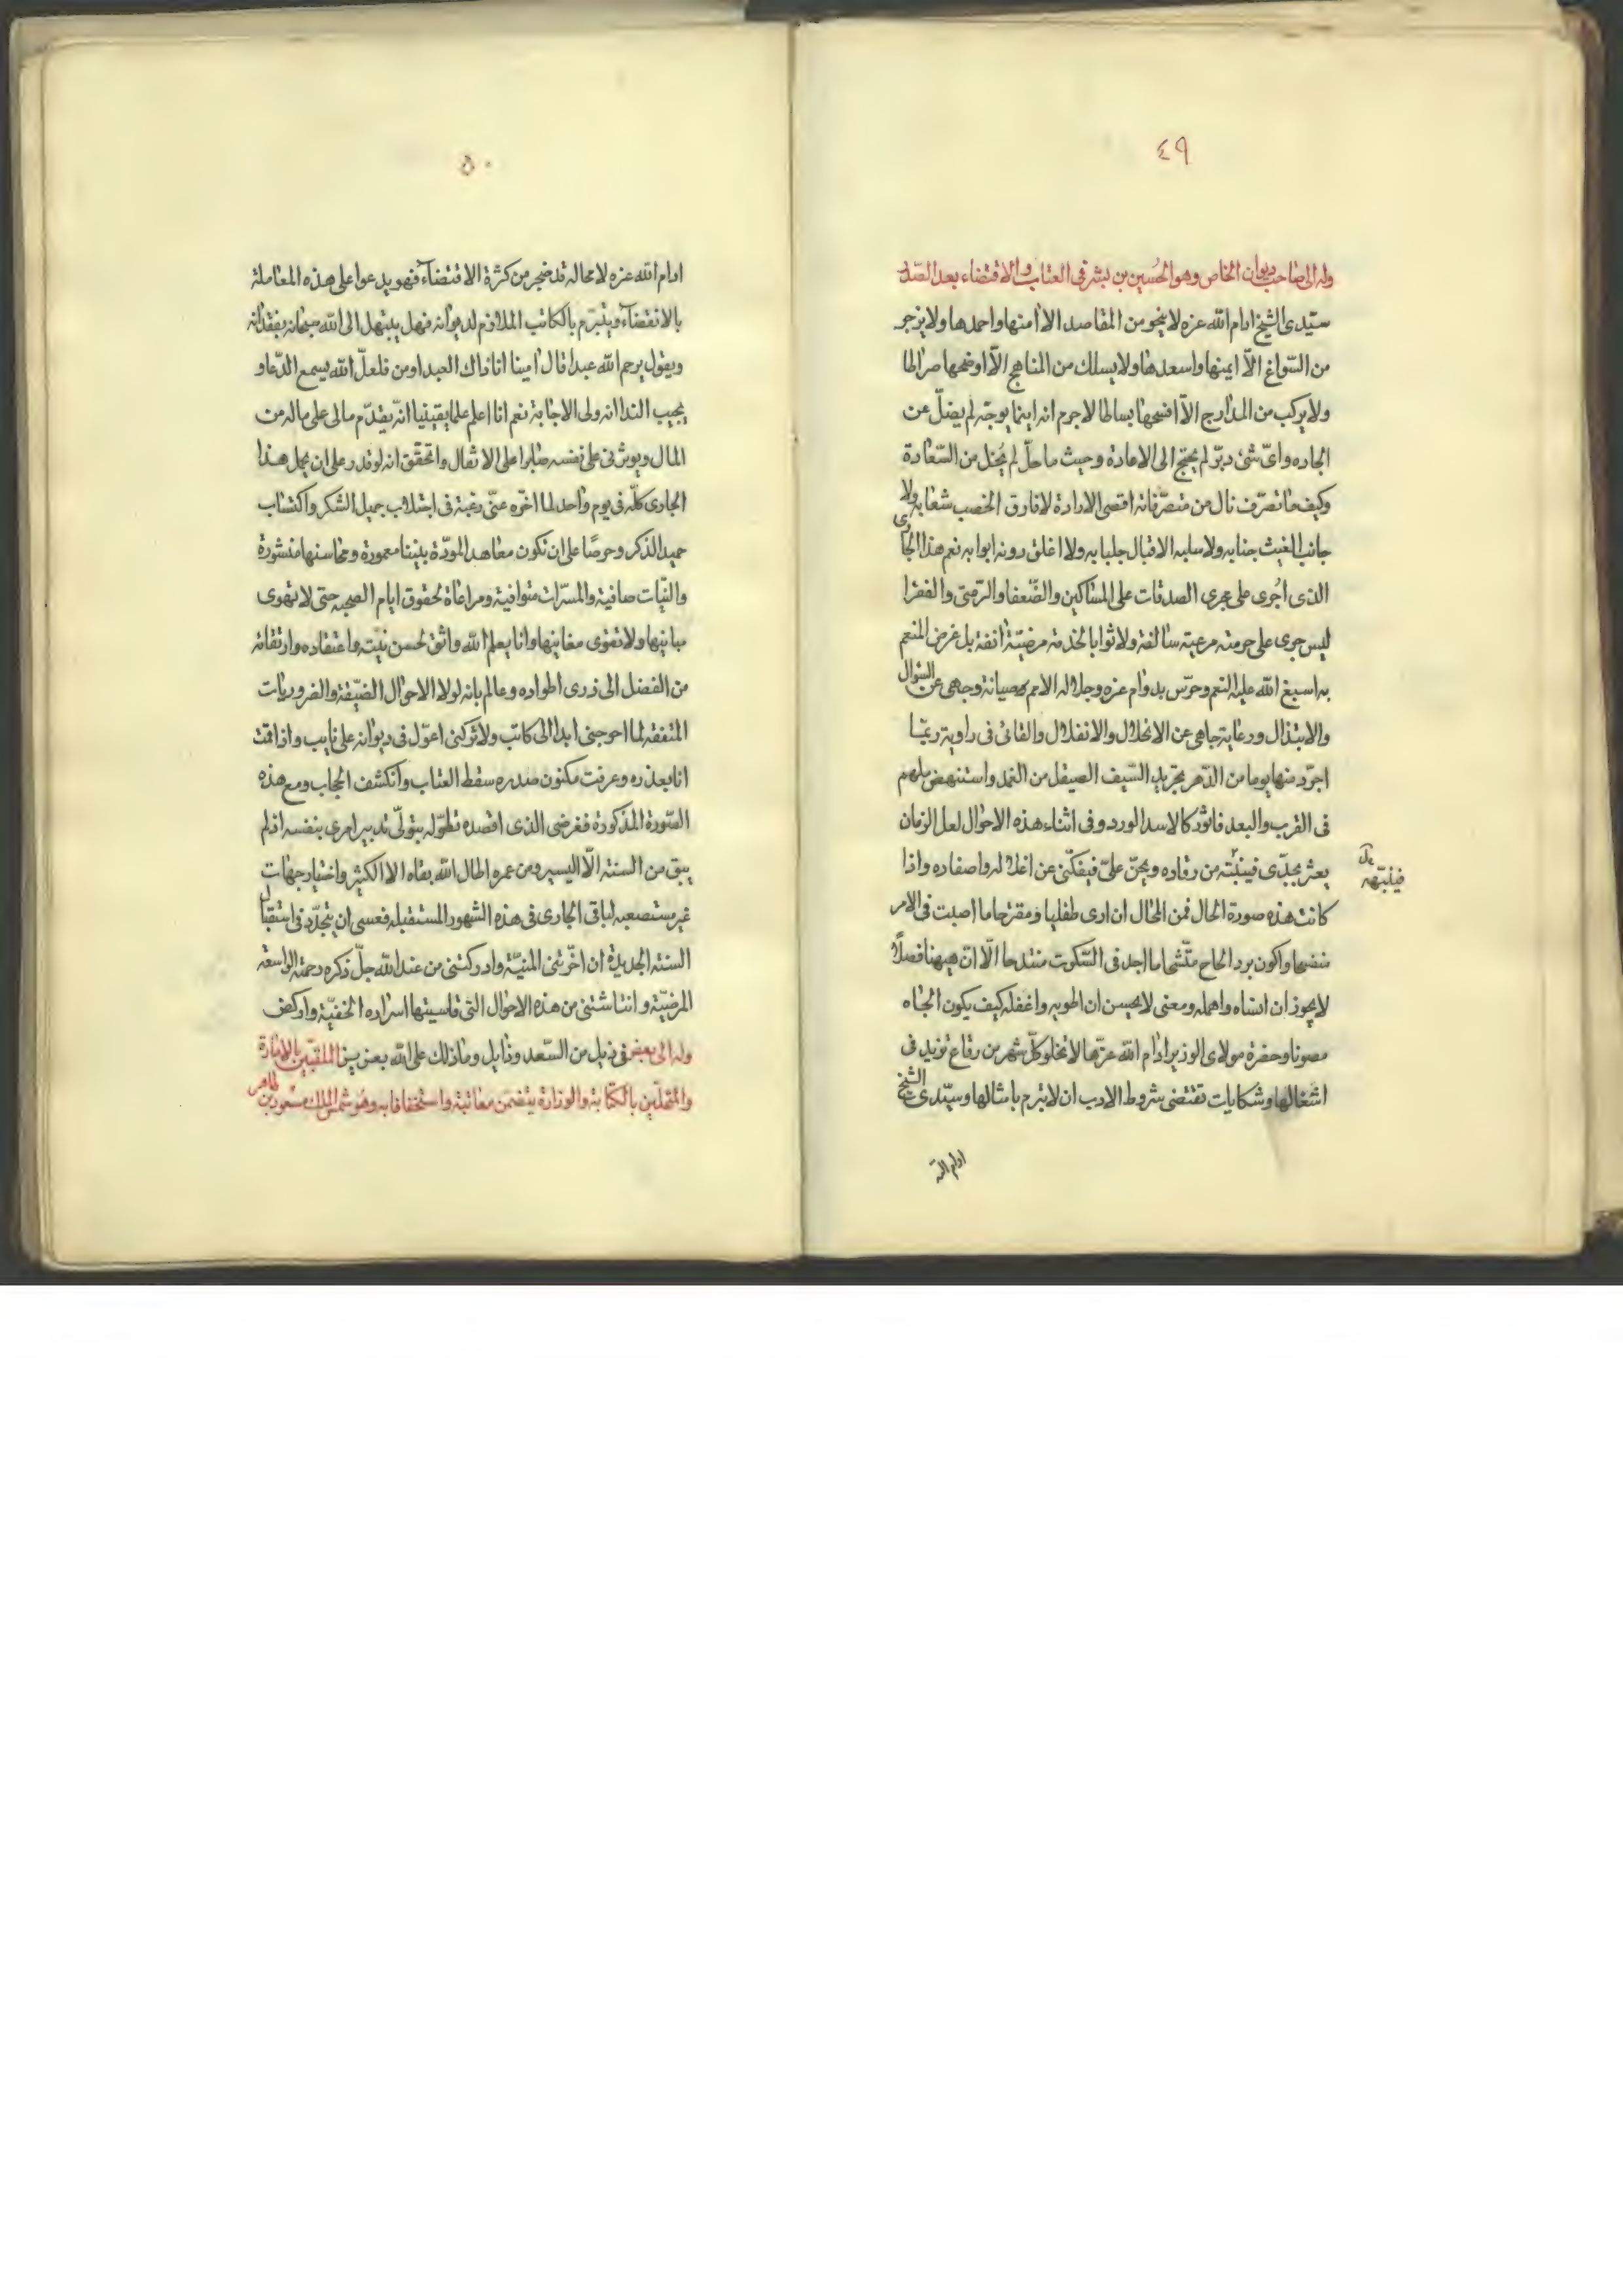 ٤٩
وله الى صاحب ديوان الخاص وهو الحسين بن بشر فى العتاب والاقتضاء بعد الصدر
سيّدى الشيخ ادام الله عزه لا ينحو من المقاصد الا أمنها واحمدها ولا يزجر
من السّوانح الّا ايمنها واسعدها ولا يسلك من المناهج الّا اوضحها صراطا
ولا يركب من المدارج الّا افسحها بساطا لا جرم انه اينما يوجّه لم يضلّ عن
الجاده واىّ شئ دبّر لم يحتج الى الاعادة وحيث ما حلّ لم يخل من السّعادة
وكيف ما تصرّف نال من متصرّفاته اقصى الارادة لا فارق الخصب شعابه ولا
جانب الغيث جنابه ولا سلبه الاقبال جلبابه ولا اغلق دونه ابوابه نعم هذا الجارى
الذى اُجرى على مجرى الصدقات على المساكين والضّعفا والزمنى والفقرا
ليس جرى على حرمته مرعية سالفة ولا ثوابا لخدمة مرضيّة انفة بل غرض المنعم
به اسبغ الله عليه النعم وحرّس بدوام عزه وجلاله الامم صيانة وجهى عن السّوال
والابتذال ورعاية جاهى عن الانحلال والانفلال والقائى فى زاوية ربّما
اجرّد منها يوما من الدّهر تجريد السّيف الصيقل من الغمد واستنهض لمهم
فى القرب والبعد فاثور كالاسد الورد وفى اثناء هذه الاحوال لعل الزمان
يعثر بجدّى فينبّه من رقاده ويحنّ علىّ فيفكّنى عن اغلاله واصفاده واذا
فينبّهه
كانت هذه صورة الحال فمن المحال ان ارى طفليا ومقترحا ما اصبت فى الامر
واكون برد الحاح ما اجد فى السّكوت منتدحا الّا انّ ههنا فصلًا
لا يجوز ان انساه واهمله ومعنى لا يحسن ان اطويه واغفله كيف يكون الجاه
مصونا وحضرة مولاى الوزير ادام الله عزّها لا تخلو كلّ شهر من رقاع تزيد فى
اشغالها وشكايات تقتضى شروط الادب ان لا تبرم بامثالها وسيّدى الشيخ
ادام الله
٥٠
ادام الله عزه لا محاله قد ضجر من كثرة الاقتضاء فهو يدعوا على هذه المعاملة
بالانقضاء ويتبرّم بالكاتب الملازم لديوانه فهل يبتهل الى الله سبحانه بفقدانه
ويقول يرحم الله عبدا قال امينا انا ذاك العبد او من فلعلّ الله يسمع الدّعا و
يجيب الندا انه ولى الاجابة نعم انا اعلم علما يقينيا انّه يقدّم مالى على ماله من
المال ويوثرنى على نفسه صابرا على الاثقال واتحقق انه لو قدر على ان يحمل هذا
الجارى كلّه فى يوم واحد لما اخّره عنّى رغبة فى اجتلاب جميل الشكر واكتساب
حميد الذكر وحرصًا على ان تكون معاهد المودّة بيننا معمورة ومحاسنها منشورة
والنيّات صافية والمسرّات متوافية ومراعاة لحقوق ايام الصحبه حتى لا تهوى
مبانيها ولا تقوى مغانيها وانا يعلم الله واثق لحسن نيّته واعتقاده وارتقائه
من الفضل الى ذرى اطواده وعالم بانه لولا الاحوال الضيّقة والضروريات
المتفقه لما احوجنى ابدا الى كاتب ولا تركنى اعوّل فى ديوانه على نايب واذا قمت
انا بعذره وعرفت مكنون صدره سقط العتاب وانكشف الحجاب ومع هذه
الصّورة المذكورة فغرضى الذى اقصده تطوّله بتولّى تدبير امرى بنفسه اذ لم
يبق من السنة الّا اليسير ومن عمره اطال الله بقاه الا الكثير واختيار جهات
غير مستصعبه لباقى الجارى فى هذه الشهور المستقبله فعسى ان يتجدّد فى استقبال
السنة الجديدة ان اخّرتنى المنيّة وادركتنى من عند الله جلّ ذكره رحمته الواسعة
المرضيّة وانتاشتنى من هذه الاحوال التى قاسيتها اسراره الخفيّة واركض
فى ذيل من السّعد وذايل وما ذلك على الله بعزيز وله الى بعض الملقبّين بالامارة
والمتحلّين بالكتابة والوزارة يتضمن معاتبة واستخفافا به وهو شمس الملك مسعود بن طاهر